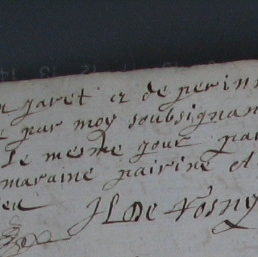 garet & de perin
par moy soubsignan
le mesme jour par
maraine pairine et
JL De Rosny